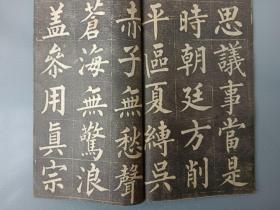 思議事當是
時朝廷方削
平區夏縛吳
赤子無愁聲
蒼海無驚浪
盖叅用真宗